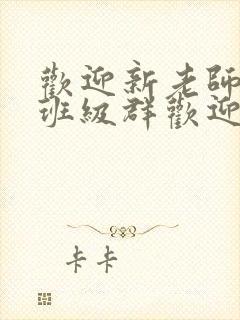 歡迎新老師
班級群歡迎
卡卡